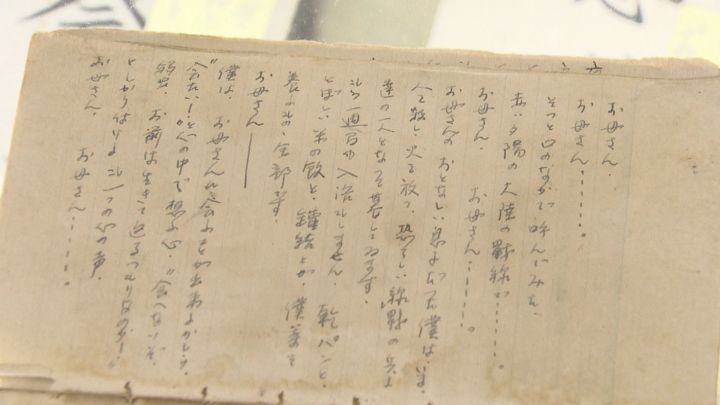 お母さん、
お母さん・・・・・。
そつと口のなかで呼んでみた、
赤い夕陽の大陸の戦線で・・・・・。
お母さん、 お母さん・・・・・。
お母さんのおとなしい息子だった僕は、いま、
人を殺し、火を放つ、恐ろしい戦線の兵士
達の一人となって暮してゐます。
もう一週間も入浴をしません。 乾パンと、
とぼしい米の飯と、罐詰とが、僕達を
養ふもの、全部です。
お母さん――
僕は、お母さんに会ふことが出来るかしら。
"会たい!"と心の中で想ふ心、"会へないぞ、
弱虫、お前は生きて還るつもりなのか!"
としかりつける、もう一つの心の声、
お母さん、 お母さん・・・・・。